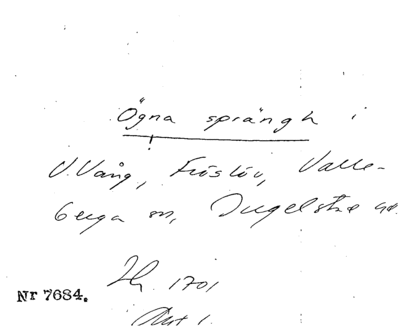 Ögna sprängh i
V. Vång, Fröslöv, Valle-
berga sn, Ingelstad hd.
Nr 7684.
1701